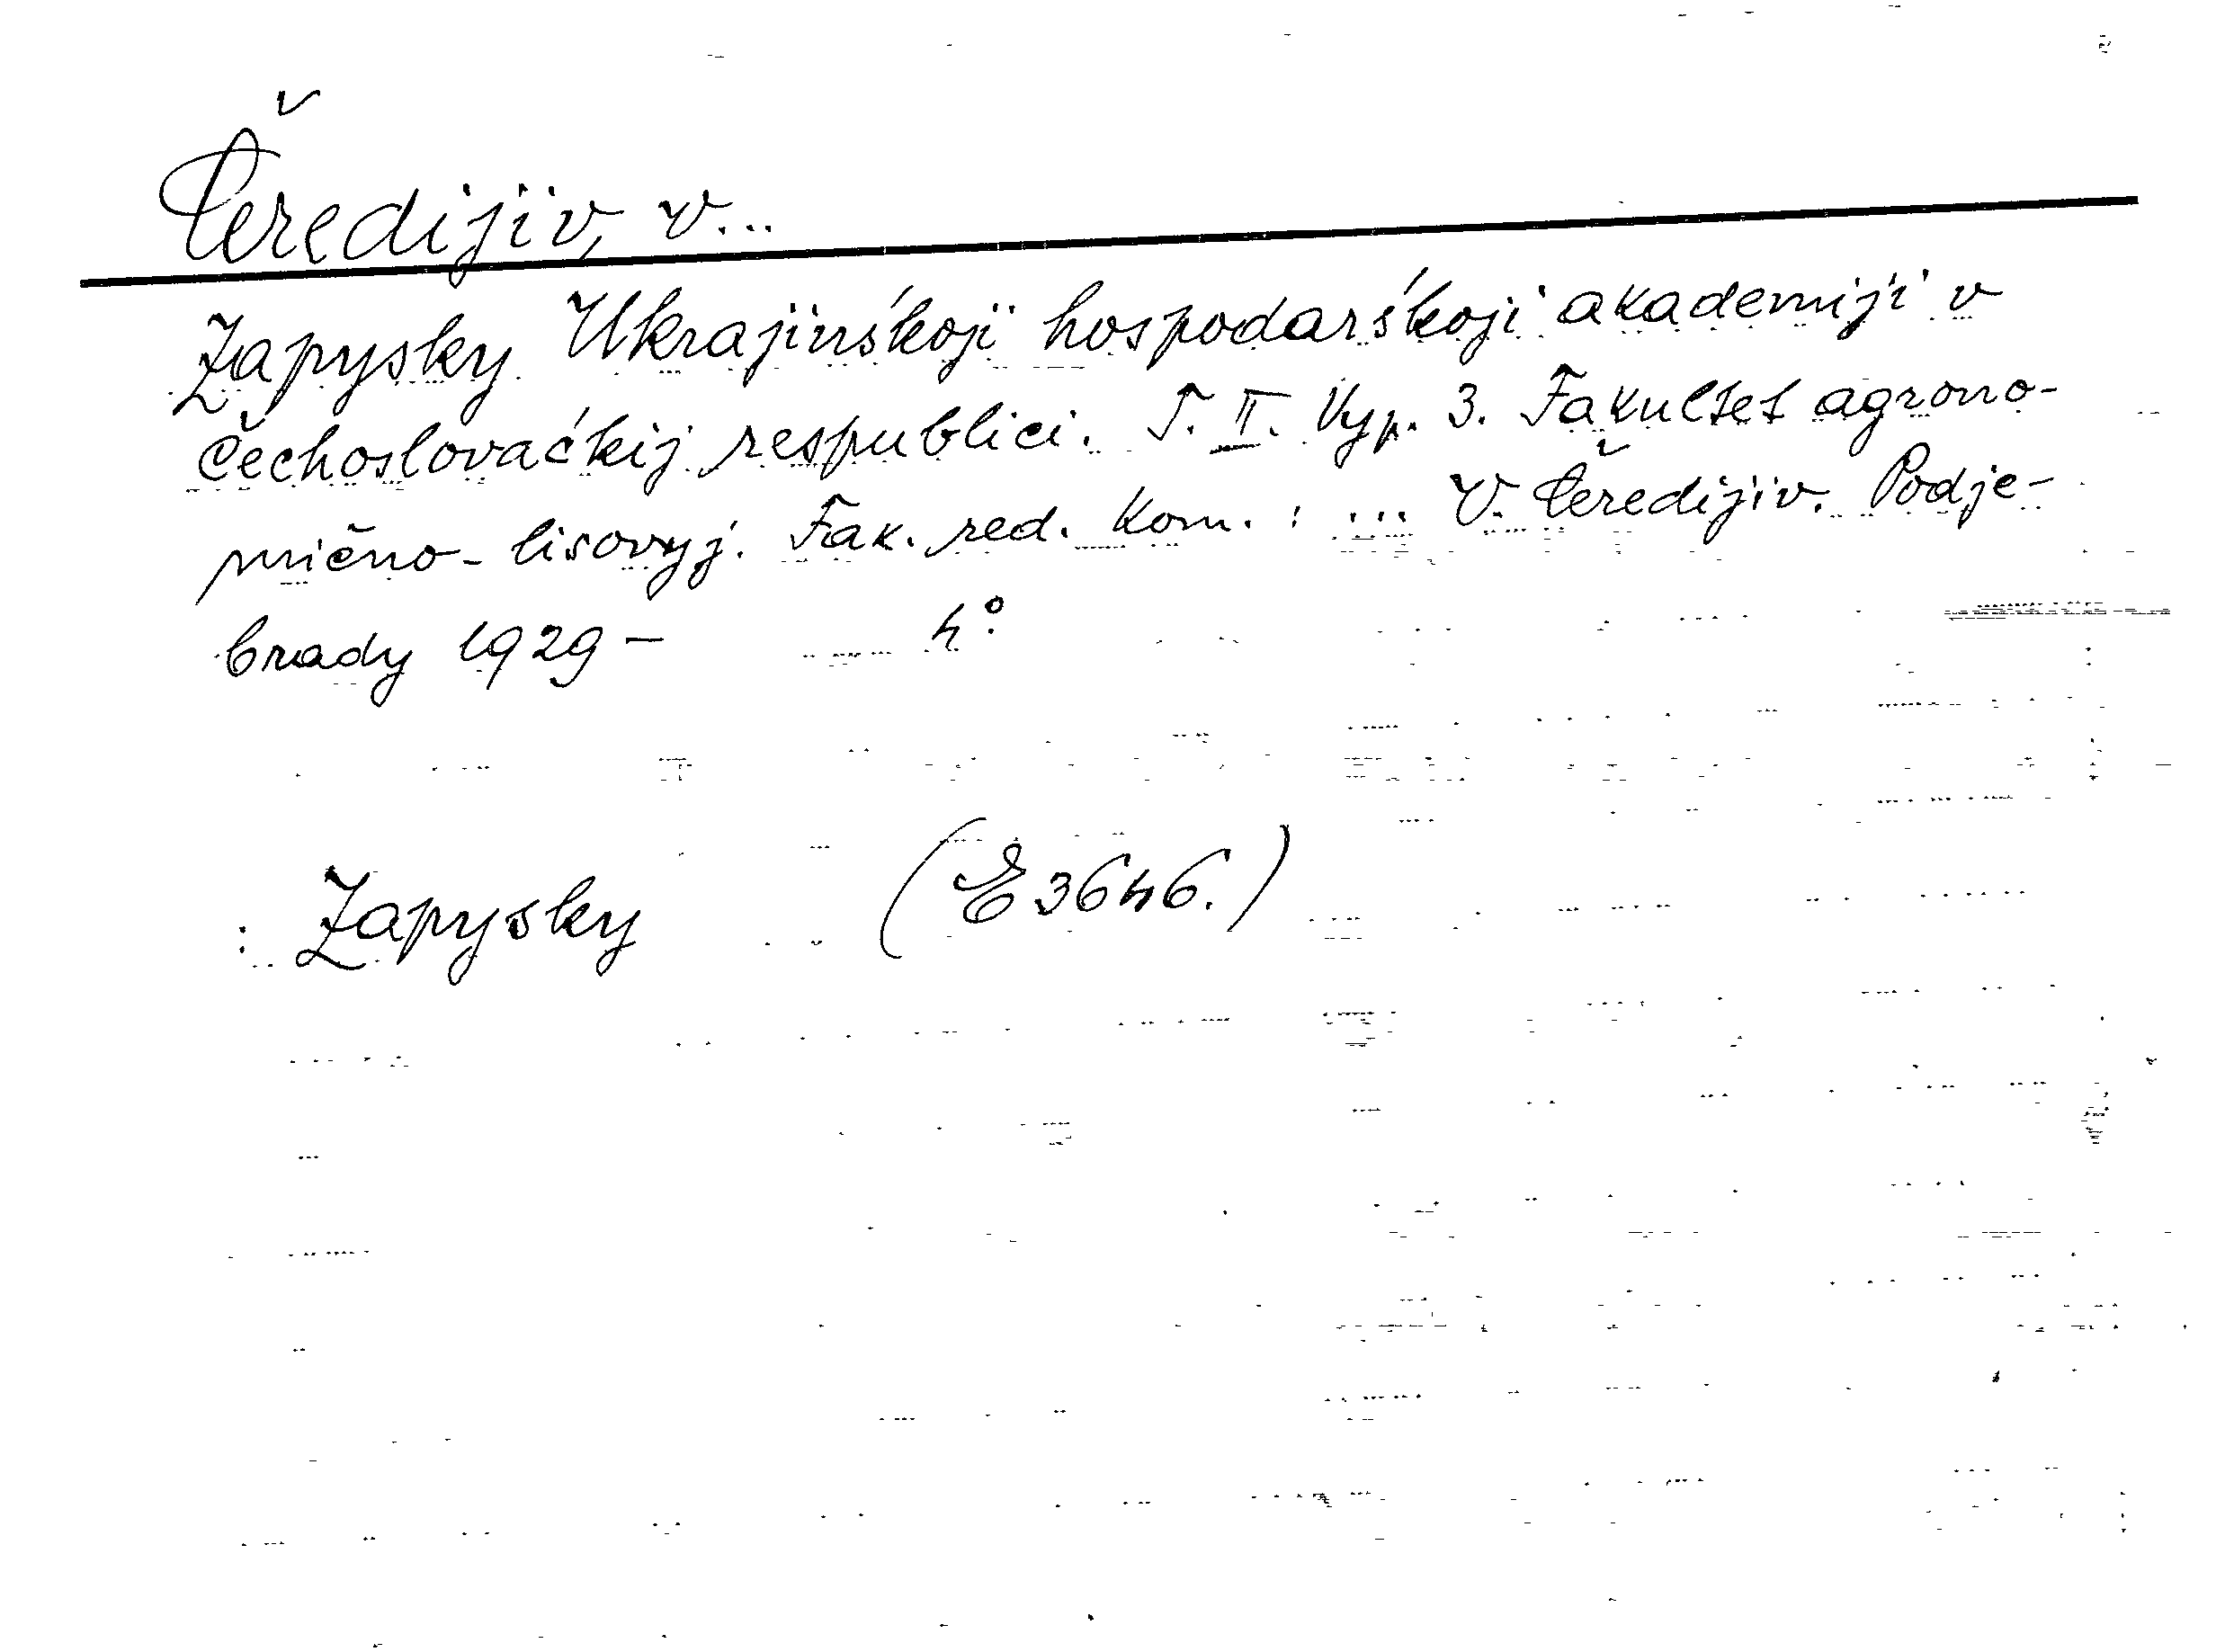 Čeredijiv, V...
Zapysky Ukrajinśkoji hospodarśkoji akademiji v
Čechoslovaćkij respublici. T. II. Vyp. 3. Fakultet agrono-
mično-lisovyj. Fak. red. kom.: ... V. Čeredijiv. Podje-
brady 1929 - 4°.
Zapysky (E 3646.)